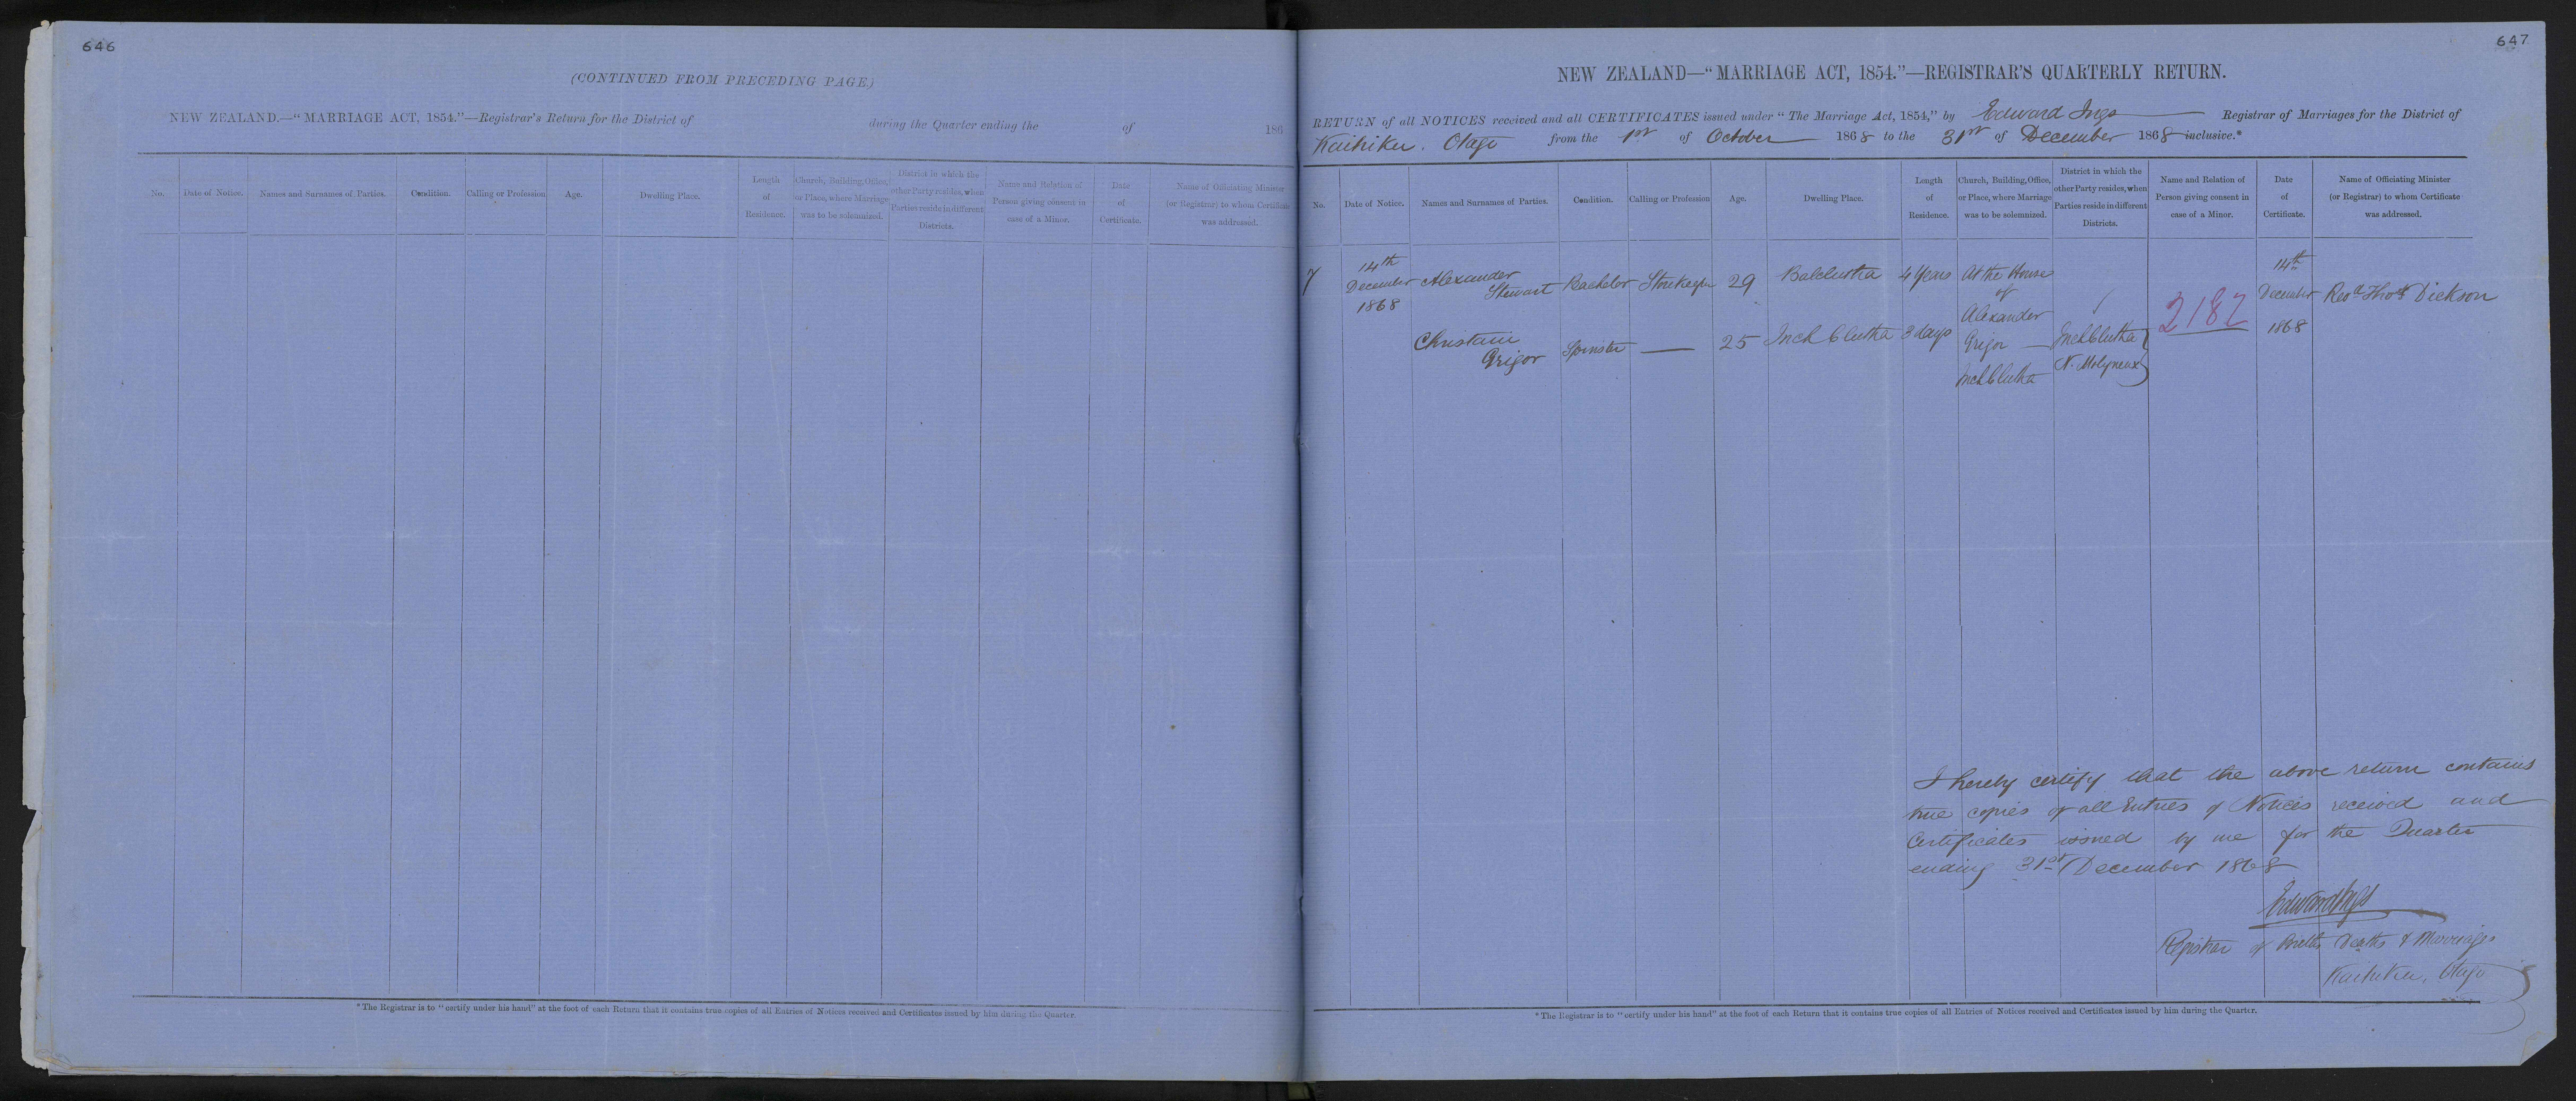 646
(CONTINUED FROM PRECEDING PAGE.)
NEW ZEALAND.—"MARRIAGE ACT, 1854."—Registrar's Return for the District of during the Quarter ending the of 186
No.
Date of Notice.
Names and Surnames of Parties.
Condition.
Calling or Profession
Age.
Dwelling Place.
Length
of
Residence.
Church, Building, Office,
or Place, where Marriage
was to be solemnized.
District in which the
other Party resides, when
Parties reside in different
Districts.
Name and Relation of
Person giving consent in
case of a Minor.
Date
of
Certificate.
Name of Officiating Minister
(or Registrar) to whom Certificate
was addressed.
*The Registrar is to "certify under his hand" at the foot of each Return that it contains true copies of all Entries of Notices received and Certificates issued by him during the Quarter.
647
NEW ZEALAND—"MARRIAGE ACT, 1854."—REGISTRAR'S QUARTERLY RETURN.
RETURN of all NOTICES received and all CERTIFICATES issued under "The Marriage Act, 1854," by Edward Ings Registrar of Marriages for the District of
Kaihiku. Otago from the 1st of October 1868 to the 31st of December 1868 inclusive.*
No.
Date of Notice.
Names and Surnames of Parties.
Condition.
Calling or Profession
Age.
Dwelling Place.
Length
of
Residence.
Church, Building, Office,
or Place, where Marriage
was to be solemnized.
District in which the
other Party resides, when
Parties reside in different
Districts.
Name and Relation of
Person giving consent in
case of a Minor.
Date
of
Certificate.
Name of Officiating Minister
(or Registrar) to whom Certificate
was addressed.
7
14th
December
1868
Alexander
Stewart
Bachelor
Storekeeper
29
Balclutha
4 Years
At the House
of
Alexander
Grigor
Inch Clutha
Christain
Grigor
Spinster
—
25
Inch Clutha
3 days
Inch Clutha
N. Molyneux
2182
14th
December
1868
Revd Thos Dickson
I hereby certify that the above return contains
true copies of all Entries of Notices received and
Certificates issued by me for the Quarter
ending 31st December 1868
Edward Ings
Registrar of Births Deaths & Marriages
Kaihiku, Otago
*The Registrar is to "certify under his hand" at the foot of each Return that it contains true copies of all Entries of Notices received and Certificates issued by him during the Quarter.